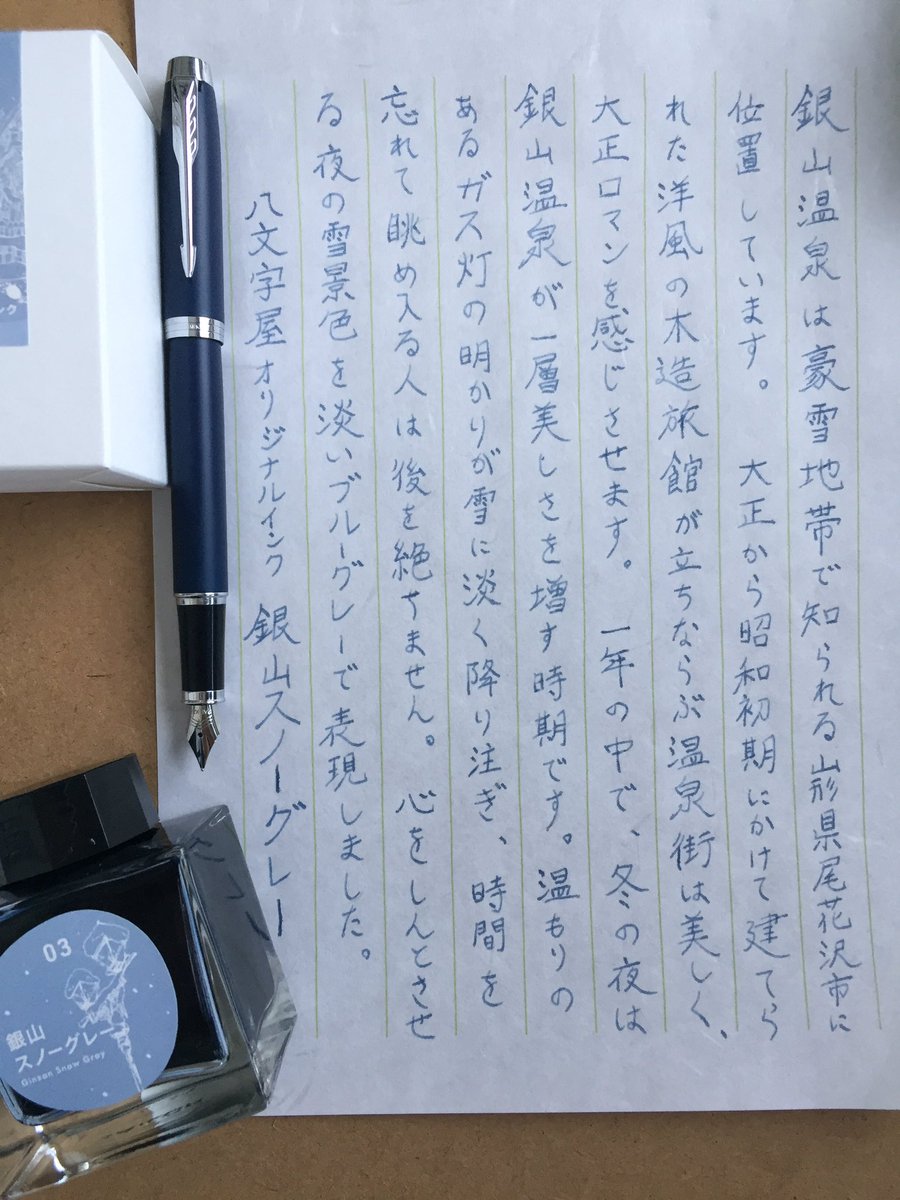 銀山温泉は豪雪地帯で知られる山形県尾花沢市に
位置しています。 大正から昭和初期にかけて建てら
れた洋風の木造旅館が立ちならぶ温泉街は美しく、
大正ロマンを感じさせます。 一年の中で、冬の夜は
銀山温泉が一層美しさを増す時期です。温もりの
あるガス灯の明かりが雪に淡く降り注ぎ、時間を
忘れて眺め入る人は後を絶ちません。 心をしんとさせ
る夜の雪景色を淡いブルーグレーで表現しました。
八文字屋オリジナルインク 銀山スノーグレー
03
銀山
スノーグレー
Ginzan Snow Gray